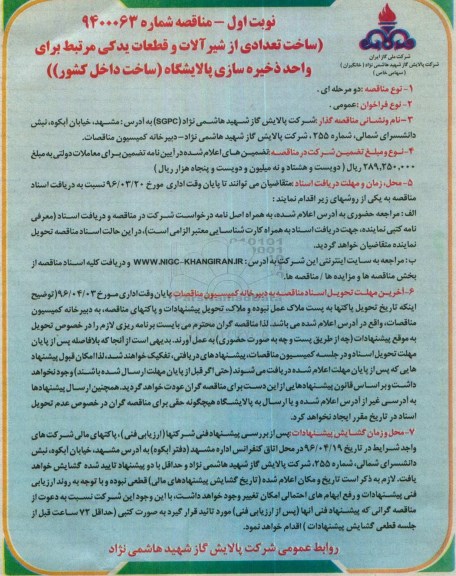 نوبت اول - مناقصه شماره ۹۴۰۰۰۶۳
(ساخت تعدادی از شیرآلات و قطعات یدکی مرتبط برای
واحد ذخیره سازی پالایشگاه (ساخت داخل کشور))
شرکت ملی گاز ایران
شرکت پالایش گاز شهید هاشمی نژاد (خانگیران)
(سهامی خاص)
۱- نوع مناقصه :دو مرحله ای .
۲- نوع فراخوان :عمومی .
۳- نام ونشانی مناقصه گذار :شرکت پالایش گاز شهید هاشمی نژاد (SGPC) به ادرس : مشهد، خیابان آبکوه، نبش
دانشسرای شمالی، شماره ۲۵۵، شرکت پالایش گاز شهید هاشمی نژاد- دبیرخانه کمیسیون مناقصات.
۴- نوع و مبلغ تضمین شرکت در مناقصه :تضمین های اعلام شده در آیین نامه تضمین برای معاملات دولتی به مبلغ
۲۸۹,۲۵۰,۰۰۰ ریال ( دویست و هشتاد و نه میلیون و دویست و پنجاه هزار ریال )
۵- محل، زمان و مهلت دریافت اسناد :متقاضیان می توانند تا پایان وقت اداری مورخ ۹۶/۰۳/۲۰ نسبت به دریافت اسناد
مناقصه به یکی از روشهای زیر اقدام نمایند :
الف : مراجعه حضوری به آدرس اعلام شده، به همراه اصل نامه درخواست شرکت در مناقصه و دریافت اسناد (معرفی
نامه کتبی نماینده، جهت دریافت اسناد به همراه کارت شناسایی معتبر الزامی است)، در این حالت اسناد مناقصه تحویل
نماینده متقاضیان خواهد گردید.
ب : مراجعه به سایت اینترنتی این شرکت به آدرس : WWW.NIGC-KHANGIRAN.IR و دریافت کلیه اسناد مناقصه از
بخش مناقصه ها و مزایده ها / مناقصه ها.
۶- آخرین مهلت تحویل اسناد مناقصه به دبیرخانه کمیسیون مناقصات :پایان وقت اداری مورخ ۹۶/۰۴/۰۳ (توضیح
اینکه تاریخ تحویل پاکتها به پست ملاک عمل نبوده و ملاک، تحویل پیشنهادات و پاکتهای مناقصه، به دبیرخانه کمیسیون
مناقصات، واقع در آدرس اعلام شده می باشد. لذا مناقصه گران محترم می بایست برنامه ریزی لازم را در خصوص تحویل
به موقع پیشنهادات (چه از طریق پست و چه به صورت حضوری) به عمل آورند. بدیهی است از آنجا که بلافاصله پس از پایان
مهلت تحویل اسناد و در جلسه کمیسیون مناقصات، پیشنهاد های دریافتی، تفکیک خواهند شد، لذا امکان قبول پیشنهاد
هایی که پس از پایان مهلت اعلام شده دریافت می شوند (حتی اگر قبل از پایان مهلت ارسال شده باشند) وجود نخواهد
داشت و بر اساس قانون پیشنهادهایی از این دست برای مناقصه گران عودت خواهد گردید. همچنین ارسال پیشنهادها
به آدرسی غیر از آدرس اعلام شده و یا ارسال به پالایشگاه هیچگونه حقی برای مناقصه گران در خصوص عدم تحویل
اسناد در تاریخ مقرر ایجاد نخواهد کرد.
۷- محل و زمان گشایش پیشنهادات :پس از بررسی پیشنهاد فنی شرکتها (ارزیابی فنی)، پاکتهای مالی شرکت های
واجد شرایط در تاریخ ۹۶/۰۴/۱۹ در محل اتاق کنفرانس اداره مشهد (دفتر آبکوه) به آدرس مشهد، خیابان آبکوه، نبش
دانشسرای شمالی، شماره ۲۵۵، شرکت پالایش گاز شهید هاشمی نژاد و حداقل با دو پیشنهاد تایید شده گشایش خواهد
یافت. لازم به ذکر است تاریخ و مکان اعلام شده (تاریخ گشایش پیشنهادهای مالی) قطعی نبوده و با توجه به روند ارزیابی
فنی پیشنهادات و رفع ابهام های احتمالی امکان تغییر وجود خواهد داشت، با این وجود این شرکت نسبت به دعوت از
مناقصه گرانی که پیشنهاد فنی آنها (پس از ارزیابی فنی) مورد تائید قرار گیرد به صورت کتبی (حداقل ۷۲ ساعت قبل از
جلسه قطعی گشایش پیشنهادات ) اقدام خواهد نمود.
روابط عمومی شرکت پالایش گاز شهید هاشمی نژاد